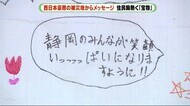 西日本豪雨の被災者からメッセージ 住民励ます「言葉」
静岡のみんなが笑顔
いっっっぱいになりま
すように!!